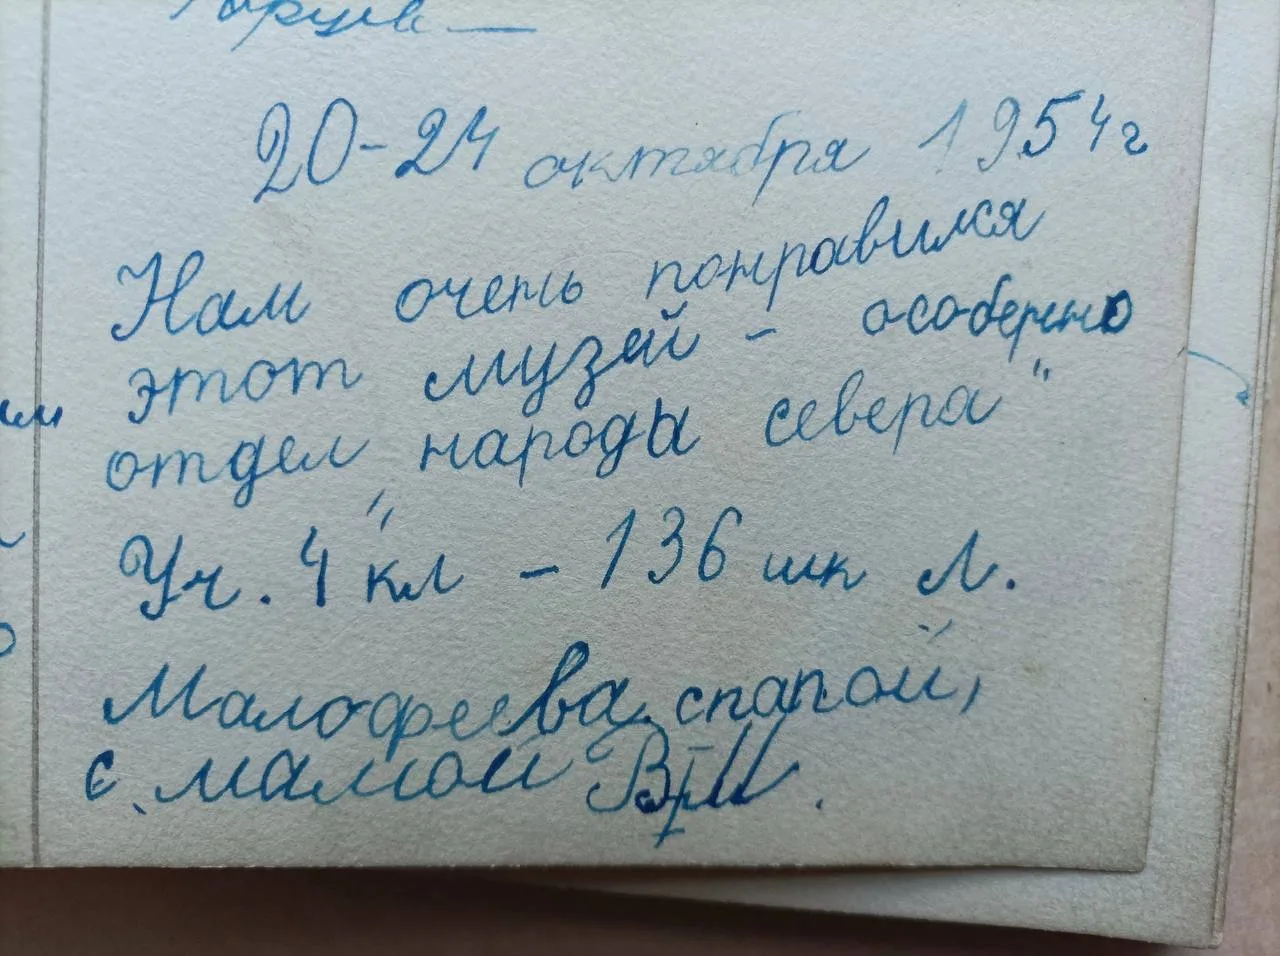 20-24 октября 1954 г
Нам очень понравился
этот музей - особенно
отдел "народы севера"
Уч. 4 кл - 136 шк Л.
Малофеева спапой,
с мамой